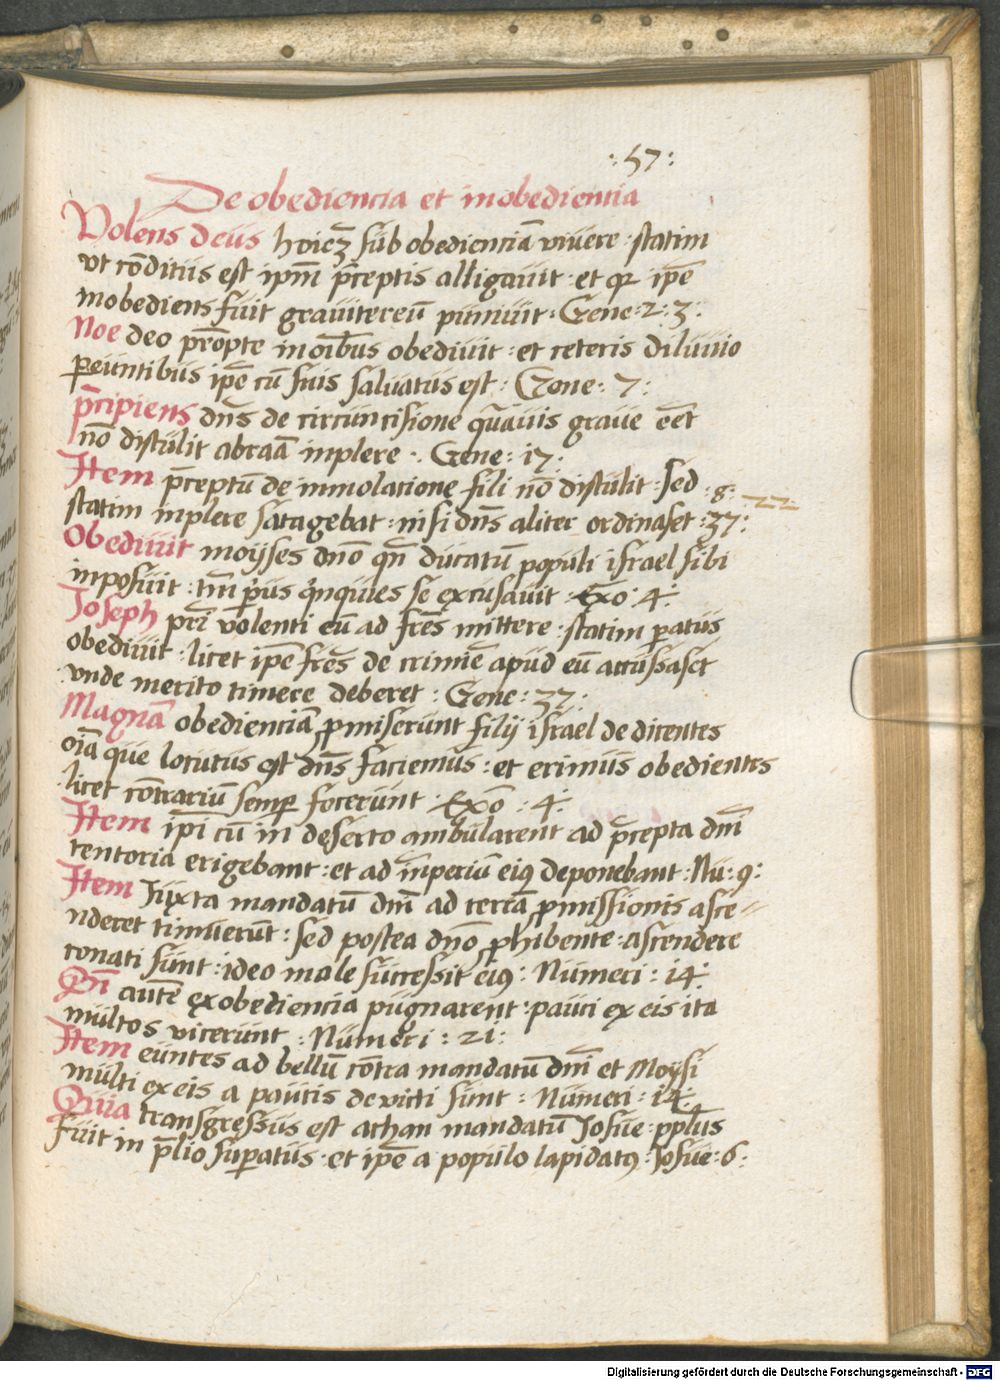 :57:
De obediencia et inobediencia
Volens deus hoiēz sub obedienciā vivere · statim
vt cōditus est ipm̄ p̄ceptis alligavit · et qr ipē
inobediens fuit graviter eū punivit · Gene · 2 · 3 ·
Noe deo prōpte in oībus obedivit · et ceteris diluvio
pereuntibus ipē cū suis salvatus est : Gene · 7 :
p̄cipiens dn̄s de circuncisione quāvis grave eēt
nō distulit abraā inplere · Gene · 17 ·
Item p̄ceptū de inmolacione fili nō distulit · sed · g · 22
statim inplere satagebat · nisi dn̄s aliter ordinaset : 37 :
Obedivit moyses dn̄o qn̄ ducatū populi israel sibi
inposuit · tm̄ pius qnquies se excusavit · Exo · 4 ·
Joseph pri volenti eū ad frēs mittere · statim paratus
obedivit · licet ipē frēs de crimīe apud eū accussaset
vnde merito timere deberet : Gene : 37 :
Magnā obedienciā promiserunt filij israel de dicentes
oīa que locutus est dn̄s faciemus : et erimus obedientes
licet contrariū semper fecerunt · Exō · 4 ·
Item ipī cū in deserto ambularent ad p̄cepta dn̄i
tentoria erigebant : et ad inperiū eiꝰ deponebant : Nu : 9 :
Item Juxta mandatū dn̄i ad terrā promissionis asce=
nderet timuerūt : sed postea dn̄o prohibente · ascendere
conati sunt : ideo male successit eiꝰ : Numeri : 14 :
Qn̄ autē ex obediencia pugnarent · pauci ex eis ita
multos vicerunt · Numeri : 21 :
Item euntes ad bellū cōtra mandatū dn̄i et Moysi
multi ex eis a paucis devicti sunt : Numeri : 14 ·
Quia transgressus est achan mandatū Josue · pplus
fuit in p̄lio superatus · et ipē a populo lapidatꝰ : Josue · 6 :
Digitalisierung gefördert durch die Deutsche Forschungsgemeinschaft - DFG